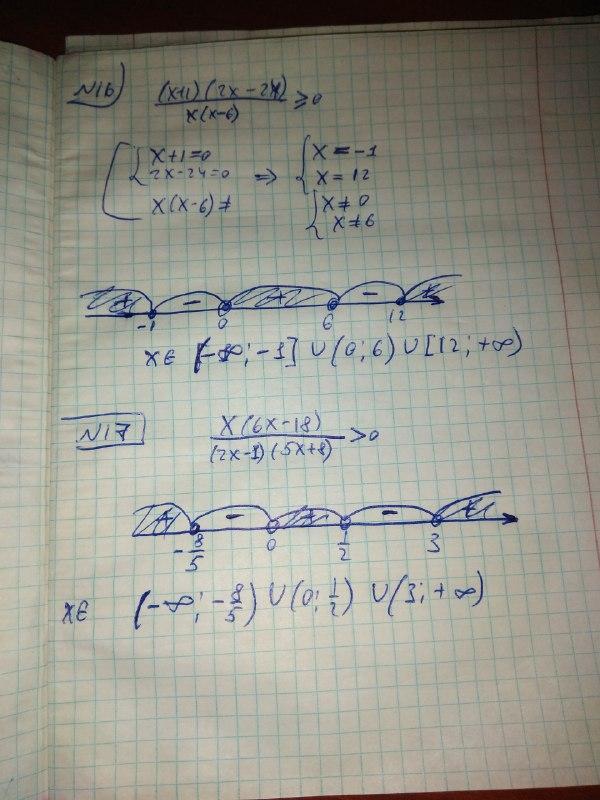 N16) (x+1)(2x-24)/x(x-6) ≥ 0
{x+1=0 {x=-1
2x-24=0 => x=12
x(x-6)≠ {x≠0
x≠6
+ - + - +
-1 0 6 12
x∈ (-∞; -1] ∪ (0; 6) ∪ [12; +∞)
N17 x(6x-18)/(2x-1)(5x+8) > 0
+ - + - +
-8/5 0 1/2 3
x∈ (-∞; -8/5) ∪ (0; 1/2) ∪ (3; +∞)